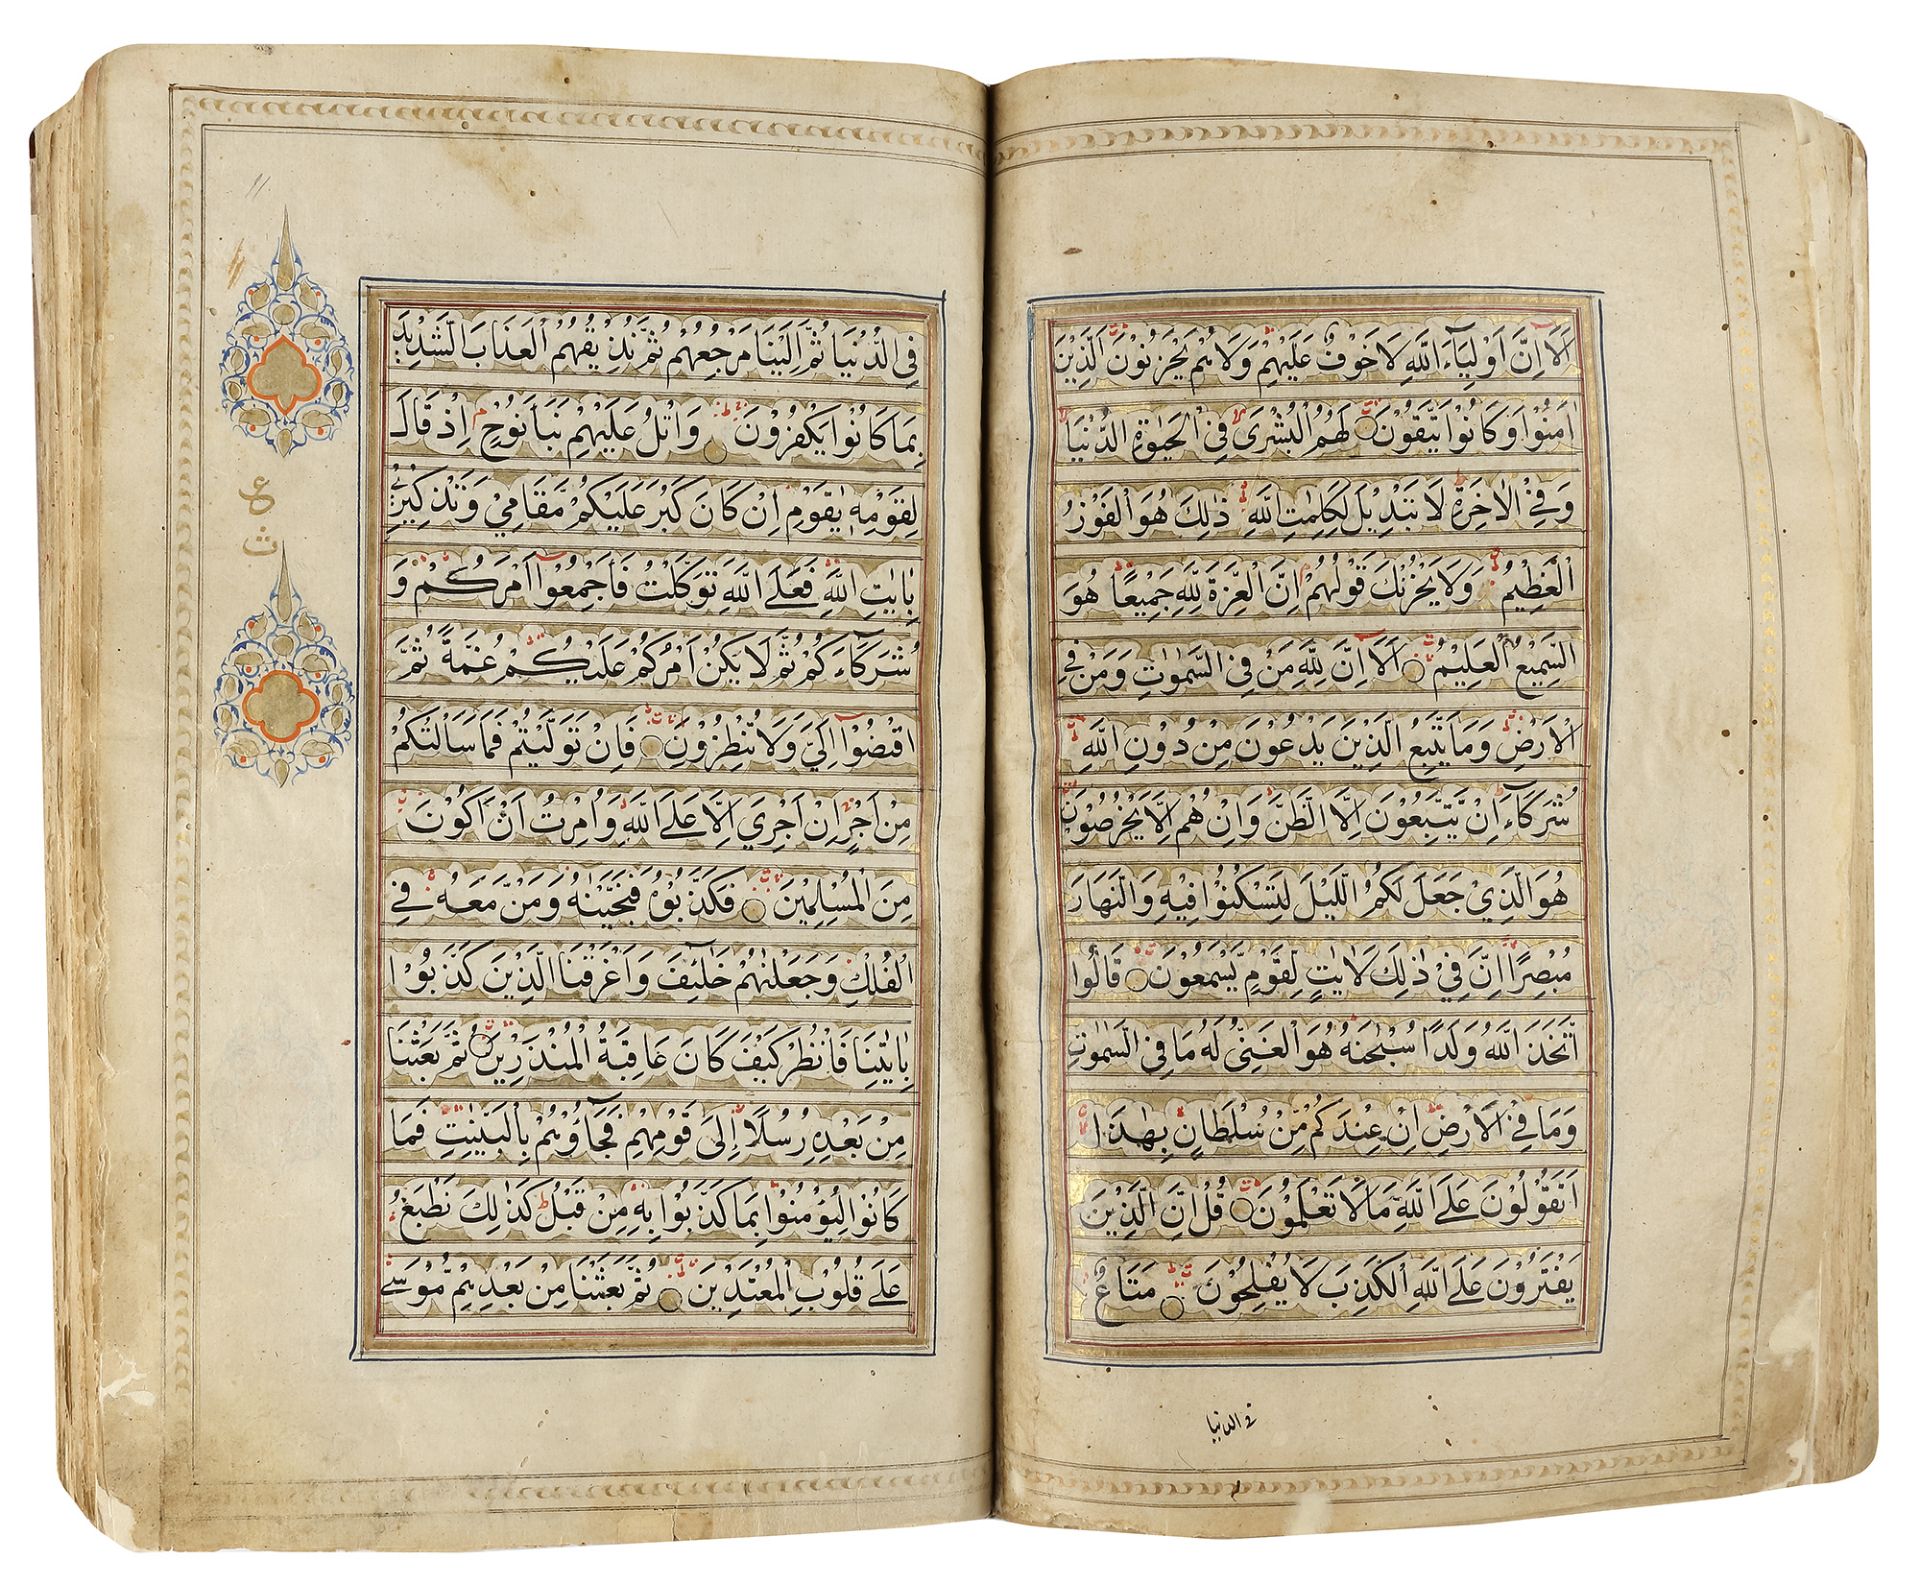 اَلَا اِنَّ اَوْلِيَآءَ اللّٰهِ لَا خَوْفٌ عَلَيْهِمْ وَلَا هُمْ يَحْزَنُوْنَ اَلَّذِيْنَ
اٰمَنُوْا وَكَانُوْا يَتَّقُوْنَ لَهُمُ الْبُشْرٰى فِي الْحَيٰوةِ الدُّنْيَا
وَفِي الْاٰخِرَةِ لَا تَبْدِيْلَ لِكَلِمٰتِ اللّٰهِ ذٰلِكَ هُوَ الْفَوْزُ
الْعَظِيْمُ وَلَا يَحْزُنْكَ قَوْلُهُمْ اِنَّ الْعِزَّةَ لِلّٰهِ جَمِيْعًا هُوَ
السَّمِيْعُ الْعَلِيْمُ اَلَا اِنَّ لِلّٰهِ مَنْ فِي السَّمٰوٰتِ وَمَنْ فِي
الْاَرْضِ وَمَا يَتَّبِعُ الَّذِيْنَ يَدْعُوْنَ مِنْ دُوْنِ اللّٰهِ
شُرَكَآءَ اِنْ يَّتَّبِعُوْنَ اِلَّا الظَّنَّ وَاِنْ هُمْ اِلَّا يَخْرُصُوْنَ
هُوَ الَّذِيْ جَعَلَ لَكُمُ الَّيْلَ لِتَسْكُنُوْا فِيْهِ وَالنَّهَارَ
مُبْصِرًا اِنَّ فِيْ ذٰلِكَ لَاٰيٰتٍ لِقَوْمٍ يَّسْمَعُوْنَ قَالُوا
اتَّخَذَ اللّٰهُ وَلَدًا سُبْحٰنَهُ هُوَ الْغَنِيُّ لَهُ مَا فِي السَّمٰوٰتِ
وَمَا فِي الْاَرْضِ اِنْ عِنْدَكُمْ مِّنْ سُلْطَانٍ بِهٰذَا
اَتَقُوْلُوْنَ عَلَى اللّٰهِ مَا لَا تَعْلَمُوْنَ قُلْ اِنَّ الَّذِيْنَ
يَفْتَرُوْنَ عَلَى اللّٰهِ الْكَذِبَ لَا يُفْلِحُوْنَ مَتَاعٌ
في الدنيا
فِي الدُّنْيَا ثُمَّ اِلَيْنَا مَرْجِعُهُمْ ثُمَّ نُذِيْقُهُمُ الْعَذَابَ الشَّدِيْدَ
بِمَا كَانُوْا يَكْفُرُوْنَ وَاتْلُ عَلَيْهِمْ نَبَاَ نُوْحٍ اِذْ قَالَ
لِقَوْمِهٖ يٰقَوْمِ اِنْ كَانَ كَبُرَ عَلَيْكُمْ مَّقَامِيْ وَتَذْكِيْرِيْ
بِاٰيٰتِ اللّٰهِ فَعَلَى اللّٰهِ تَوَكَّلْتُ فَاَجْمِعُوْٓا اَمْرَكُمْ وَ
شُرَكَآءَكُمْ ثُمَّ لَا يَكُنْ اَمْرُكُمْ عَلَيْكُمْ غُمَّةً ثُمَّ
اقْضُوْٓا اِلَيَّ وَلَا تُنْظِرُوْنِ فَاِنْ تَوَلَّيْتُمْ فَمَا سَاَلْتُكُمْ
مِنْ اَجْرٍ اِنْ اَجْرِيَ اِلَّا عَلَى اللّٰهِ وَاُمِرْتُ اَنْ اَكُوْنَ
مِنَ الْمُسْلِمِيْنَ فَكَذَّبُوْهُ فَنَجَّيْنٰهُ وَمَنْ مَّعَهُ فِي
الْفُلْكِ وَجَعَلْنٰهُمْ خَلٰٓئِفَ وَاَغْرَقْنَا الَّذِيْنَ كَذَّبُوْا
بِاٰيٰتِنَا فَانْظُرْ كَيْفَ كَانَ عَاقِبَةُ الْمُنْذَرِيْنَ ثُمَّ بَعَثْنَا
مِنْ بَعْدِهٖ رُسُلًا اِلٰى قَوْمِهِمْ فَجَآؤُهُمْ بِالْبَيِّنٰتِ فَمَا
كَانُوْا لِيُؤْمِنُوْا بِمَا كَذَّبُوْا بِهٖ مِنْ قَبْلُ كَذٰلِكَ نَطْبَعُ
عَلٰى قُلُوْبِ الْمُعْتَدِيْنَ ثُمَّ بَعَثْنَا مِنْ بَعْدِهِمْ مُّوْسٰى
ع